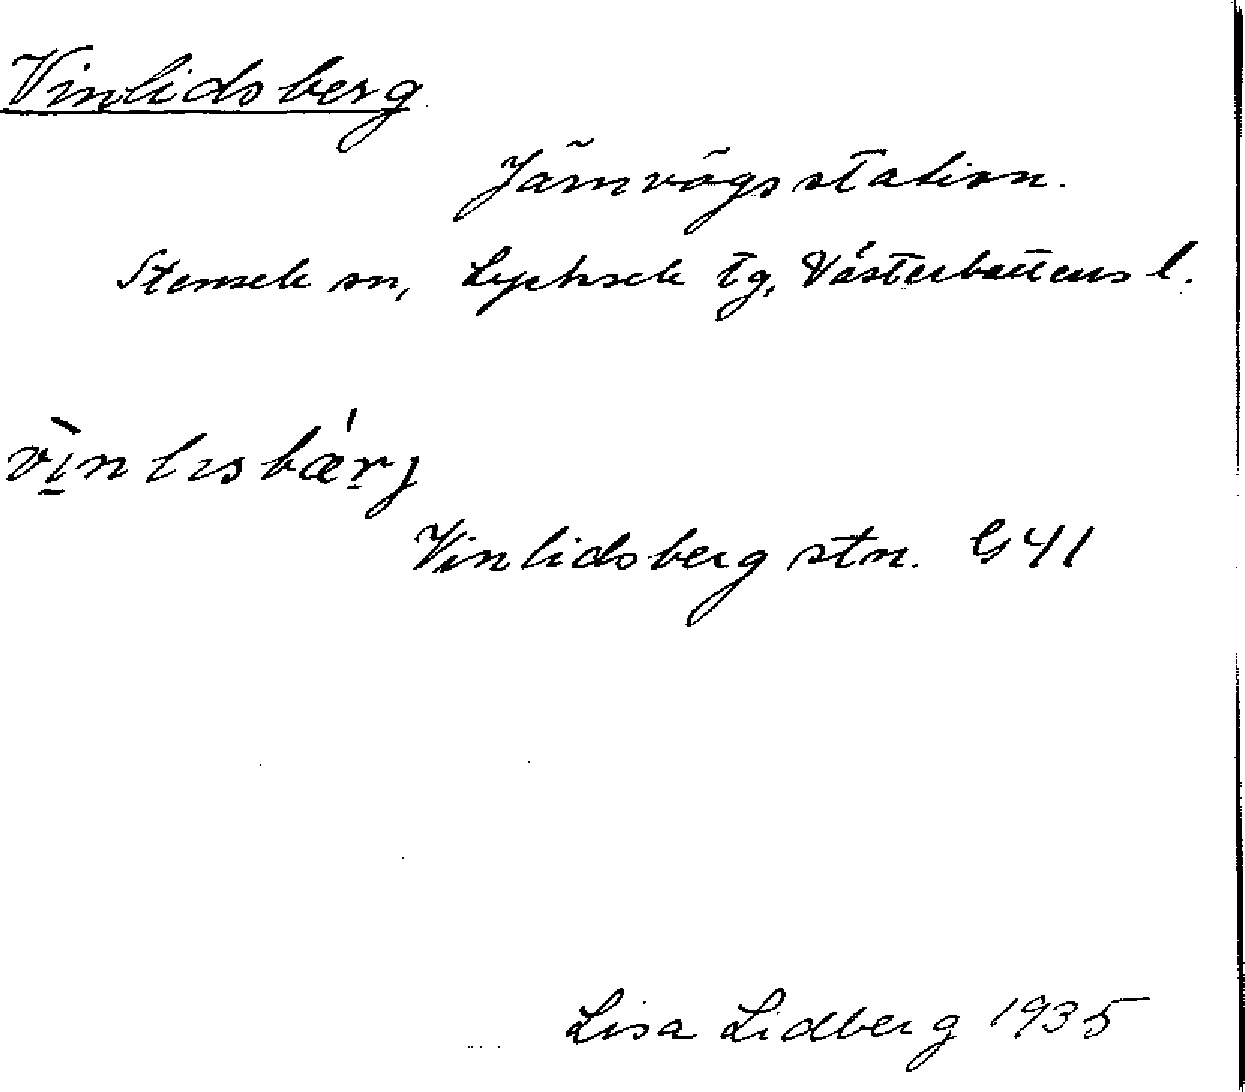 Vinlidsberg
Järnvägsstation.
Stensele sn, Lycksele tg, Västerbottens l.
vìnlısbǽrj
Vinlidsberg stn. G41
Lisa Lidberg 1935